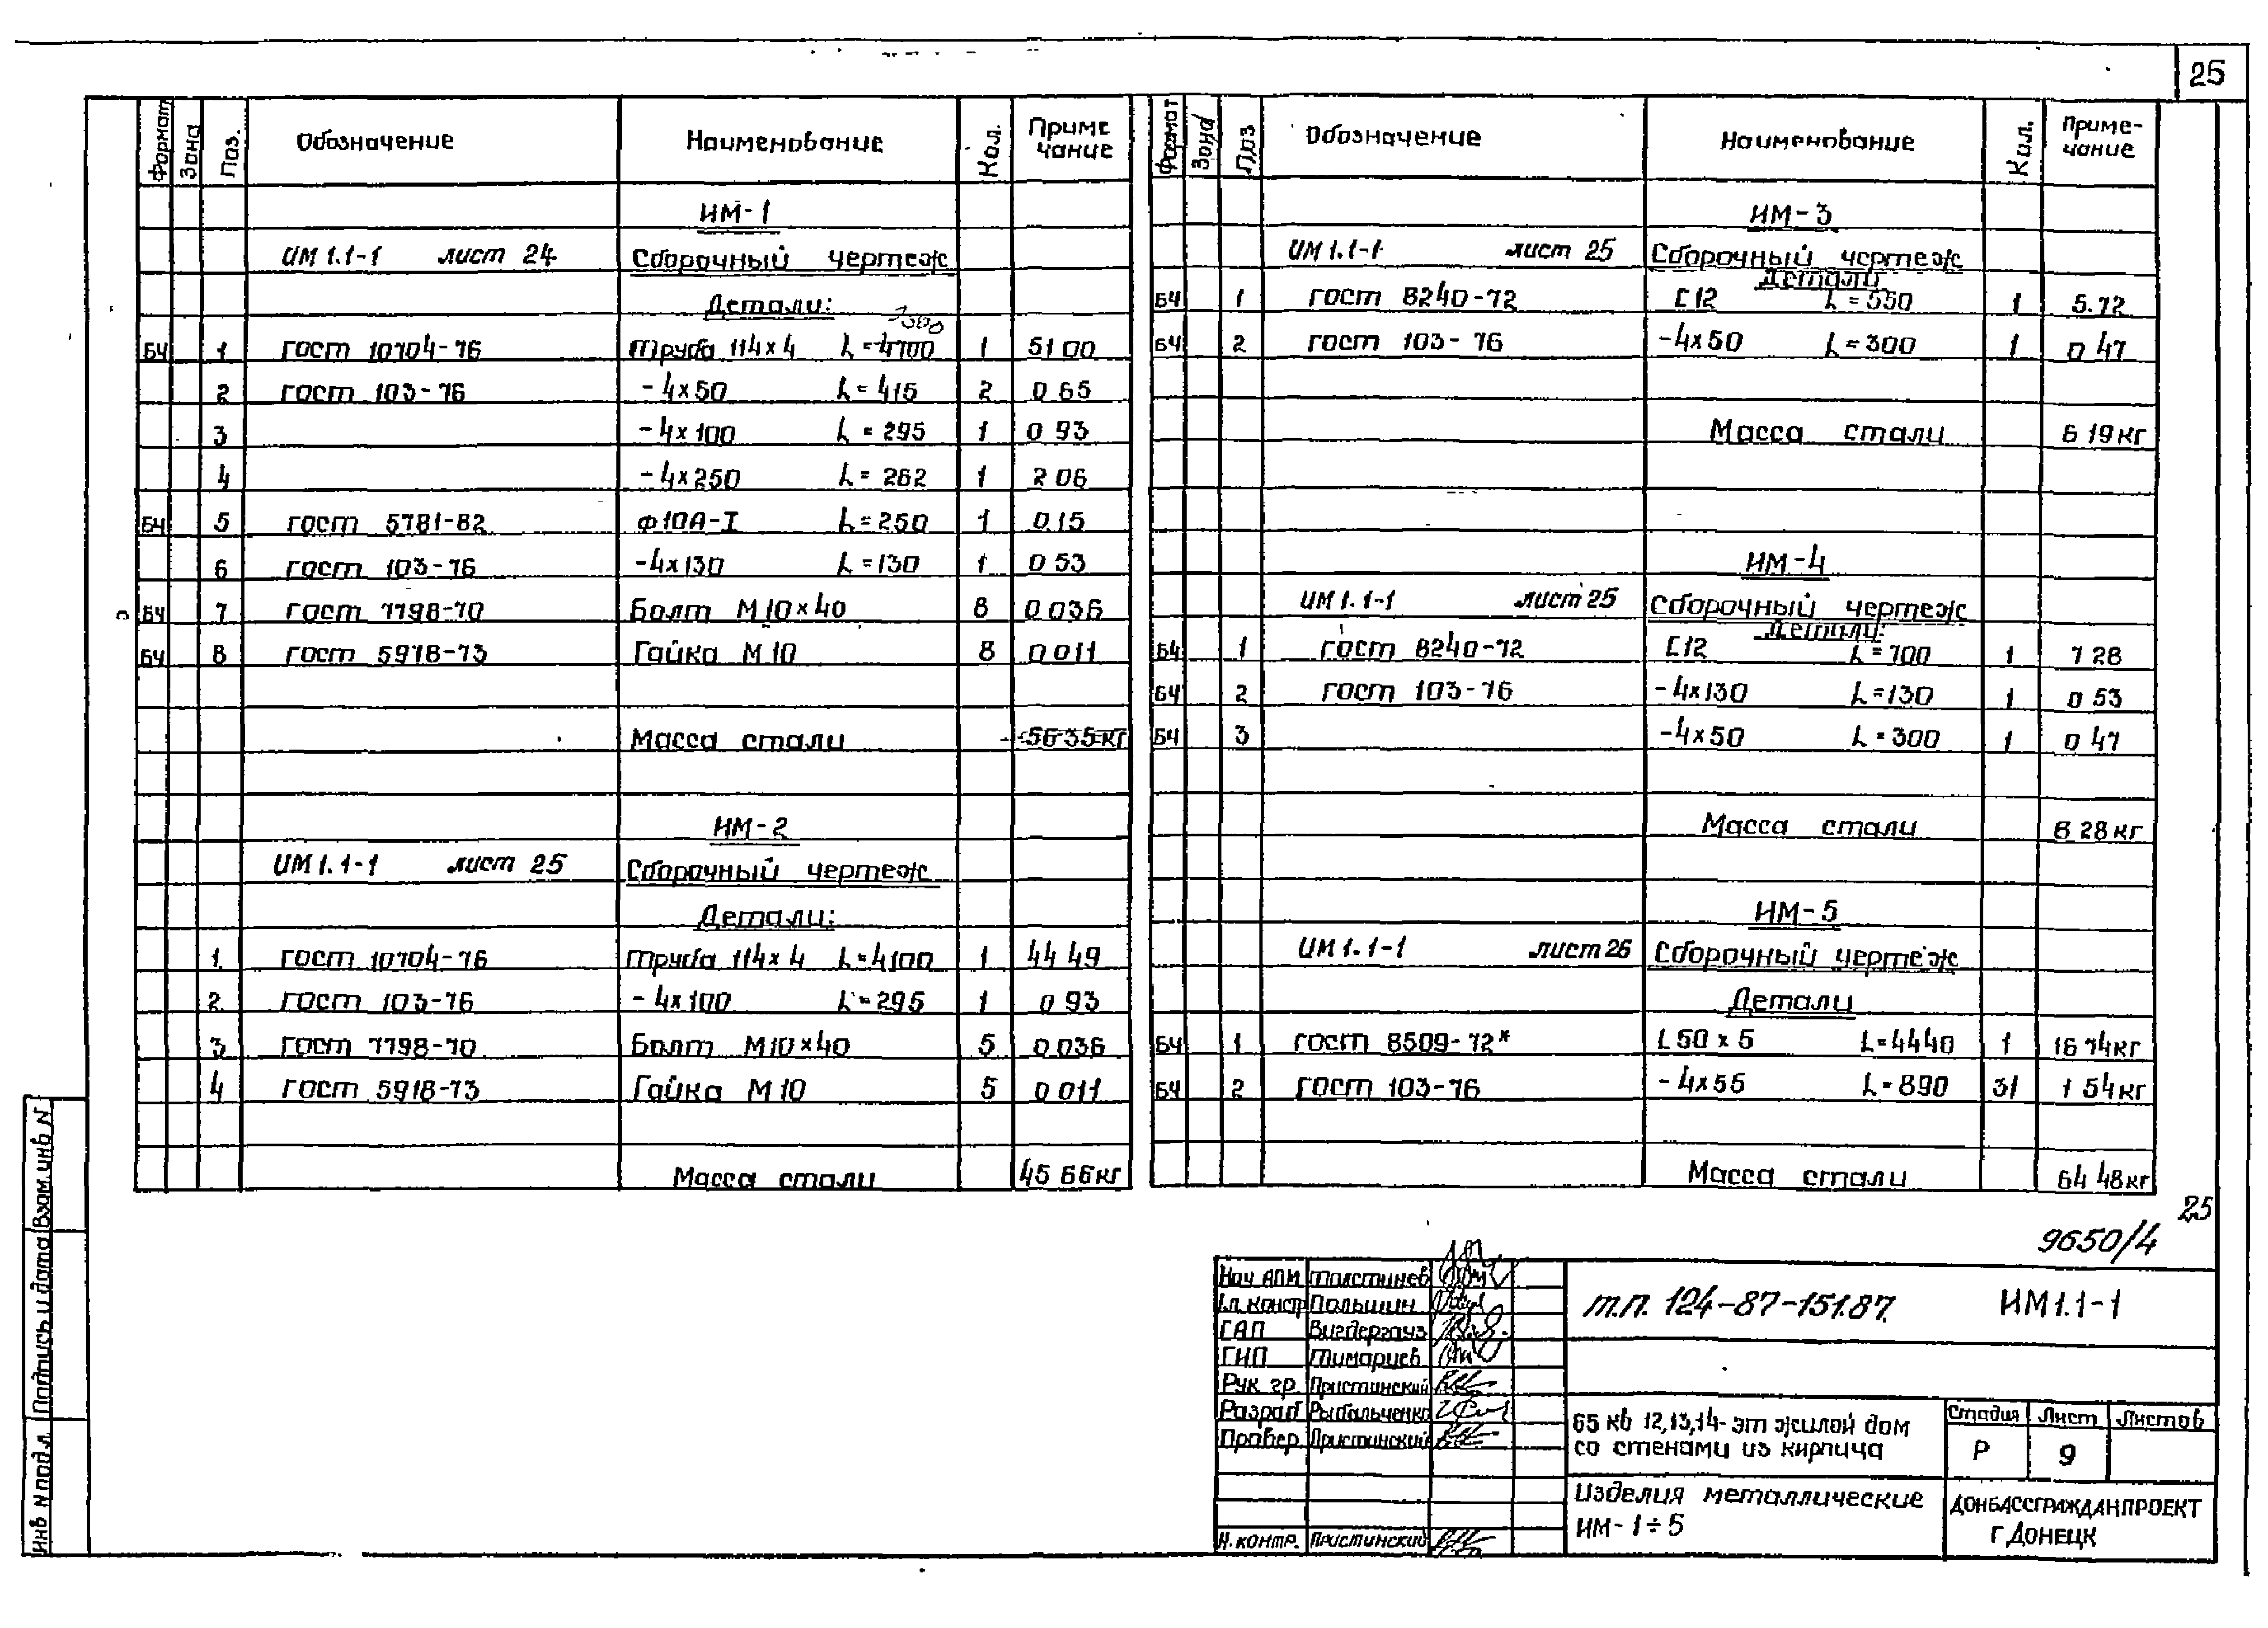 25
Формат Зона Поз. Обозначение Наименование Кол. Примечание
ИМ-1
ИМ 1.1-1 лист 24 Сборочный чертеж
Детали:
БЧ 1 ГОСТ 10704-76 Труба 114×4 L=4700 1 51 00
2 ГОСТ 103-76 -4×50 L=415 2 0 65
3 -4×100 L=295 1 0 93
4 -4×250 L=262 1 2 06
БЧ 5 ГОСТ 5781-82 Ф10А-I L=250 1 0.15
6 ГОСТ 103-76 -4×130 L=130 1 0 53
БЧ 7 ГОСТ 7798-70 Болт М10×40 8 0 036
БЧ 8 ГОСТ 5918-73 Гайка М10 8 0 011
Масса стали 56 35 кг
ИМ-2
ИМ 1.1-1 лист 25 Сборочный чертеж
Детали:
1 ГОСТ 10704-76 Труба 114×4 L=4100 1 44 49
2 ГОСТ 103-76 -4×100 L=295 1 0 93
3 ГОСТ 7798-70 Болт М10×40 5 0 036
4 ГОСТ 5918-73 Гайка М10 5 0 011
Масса стали 45 66 кг
Формат Зона Поз Обозначение Наименование Кол. Приме-
чание
ИМ-3
ИМ 1.1-1 лист 25 Сборочный чертеж
Детали
БЧ 1 ГОСТ 8240-72 [12 L=550 1 5.72
БЧ 2 ГОСТ 103-76 -4×50 L=300 1 0 47
Масса стали 6 19 кг
ИМ-4
ИМ 1.1-1 лист 25 Сборочный чертеж
Детали:
БЧ 1 ГОСТ 8240-72 [12 L=700 1 7 28
БЧ 2 ГОСТ 103-76 -4×130 L=130 1 0 53
БЧ 3 -4×50 L=300 1 0 47
Масса стали 8 28 кг
ИМ-5
ИМ 1.1-1 лист 26 Сборочный чертеж
Детали
БЧ 1 ГОСТ 8509-72* L50×5 L=4440 1 16 74кг
БЧ 2 ГОСТ 103-76 -4×55 L=890 31 1 54кг
Масса стали 64 48кг
25
9650/4
Нач АПМ Толстинев
Гл. констр Польшин
ГАП Вигдергауз
ГИП Тимариев
Рук гр. Пристинский
Разраб Рыбальченко
Провер Пристинский
Н. контр. Пристинский
т.п. 124-87-151.87. ИМ1.1-1
65 кв 12,13,14- эт жилой дом
со стенами из кирпича
Стадия Лист Листов
Р 9
Изделия металлические
ИМ-1÷5
ДОНБАССГРАЖДАНПРОЕКТ
Г.ДОНЕЦК
Инв N подл. Подпись и дата Взам. инв N